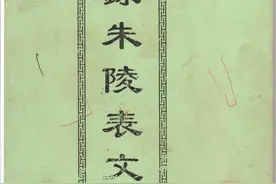 朱陵表文